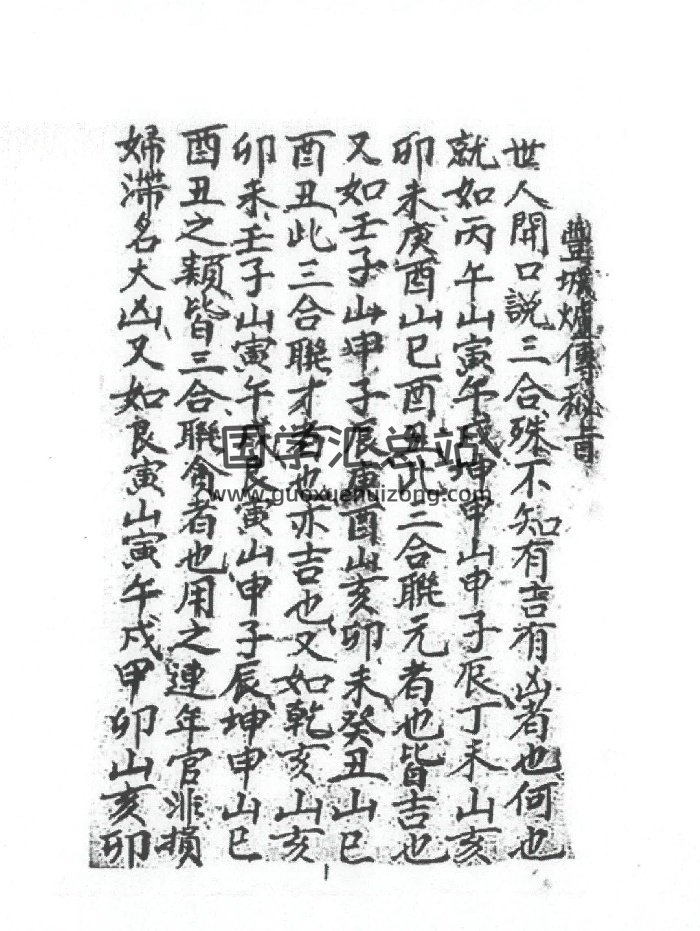 豐城爐傳秘旨
世人開口說三合殊不知有吉有凶者也何也
就如丙午山寅午戌坤申山申子辰丁未山亥
卯未庚酉山巳酉丑此三合聯元者也皆吉也
又如壬子山申子辰庚酉山亥卯未癸丑山巳
酉丑此三合聯才者也亦吉也又如乾亥山亥
卯未壬子山寅午戌艮寅山申子辰坤申山巳
酉丑之類皆三合聯貪者也用之連年官非損
婦滯名大凶又如艮寅山寅午戌甲卯山亥卯
国学汇总站
www.guoxuehuizong.com
1